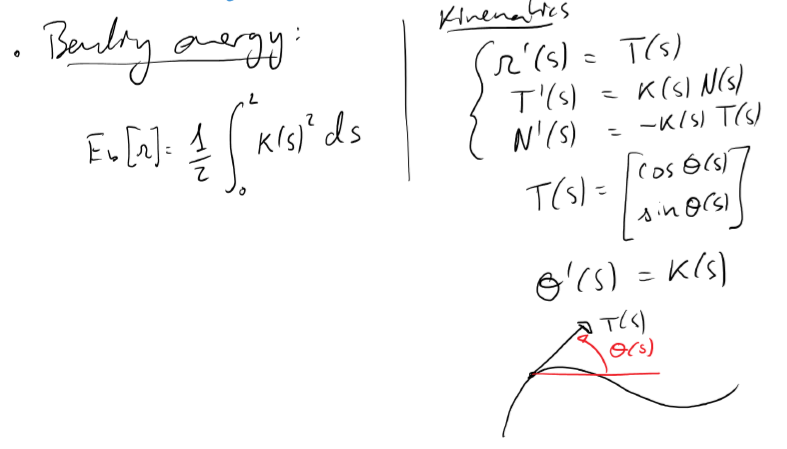 • Bending energy:
E_b[r] = 1/2 ∫_0^L K(s)² ds
Kinematics
{ r'(s) = T(s)
T'(s) = K(s) N(s)
N'(s) = -K(s) T(s)
T(s) = [cos θ(s)
sin θ(s)]
θ'(s) = K(s)
T(s)
θ(s)